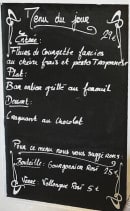 Menu du jour
29€
Entrée:
Fleurs de Courgette farcies
au chèvre frais et pesto Tamponnade
Plat:
Bar entier grillé au fenouil
Dessert:
Craquant au chocolat
Pour ce menu nous vous suggérons:
Bouteille: Rosé
25€
Verre: Rosé 5€